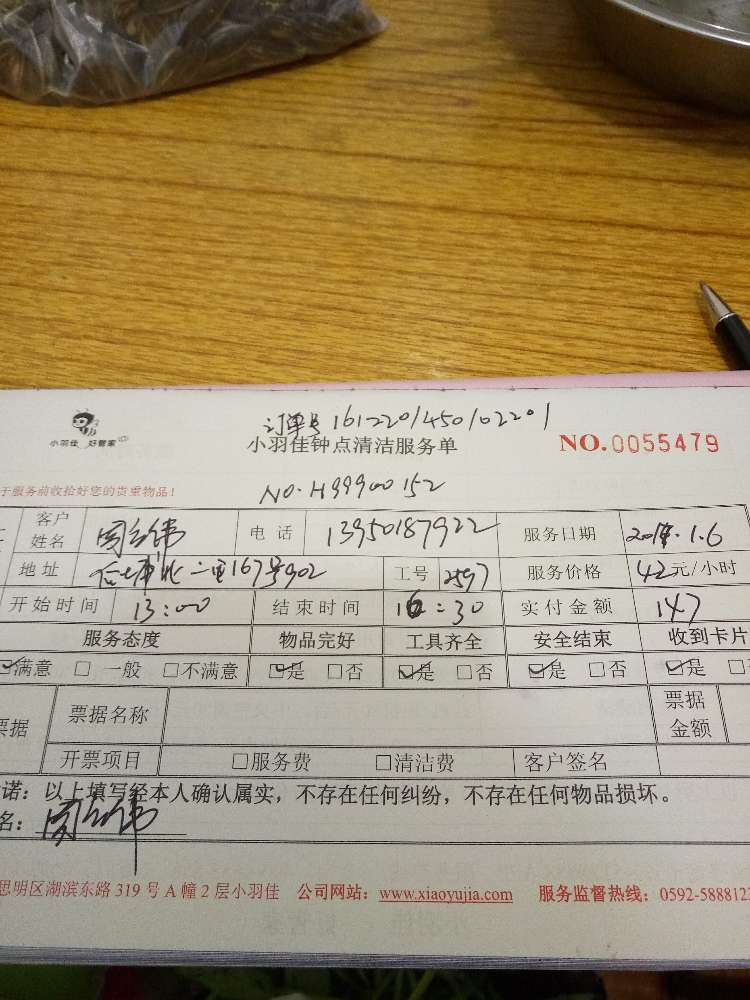 订单号 1612201450102201
小羽佳 好管家 小羽佳钟点清洁服务单 NO.0055479
于服务前收拾好您的贵重物品！ NO.H99900152
客户姓名 电话 13950187922 服务日期 1.6
地址 二里167号902 工号 2597 服务价格 42元/小时
开始时间 13:00 结束时间 16:30 实付金额 147
服务态度 物品完好 工具齐全 安全结束 收到卡片
☑满意 □一般 □不满意 ☑是 □否 ☑是 □否 ☑是 □否 ☑是 □
票据 票据名称 票据金额
开票项目 □服务费 □清洁费 客户签名
诺：以上填写经本人确认属实，不存在任何纠纷，不存在任何物品损坏。
名：
思明区湖滨东路 319 号 A 幢 2 层小羽佳 公司网站：www.xiaoyujia.com 服务监督热线：0592-5888123